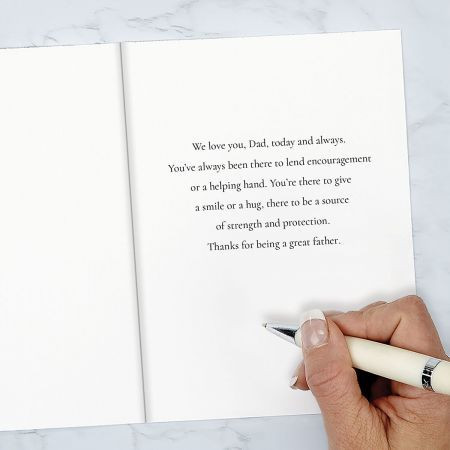 We love you, Dad, today and always.
You've always been there to lend encouragement
or a helping hand. You're there to give
a smile or a hug, there to be a source
of strength and protection.
Thanks for being a great father.